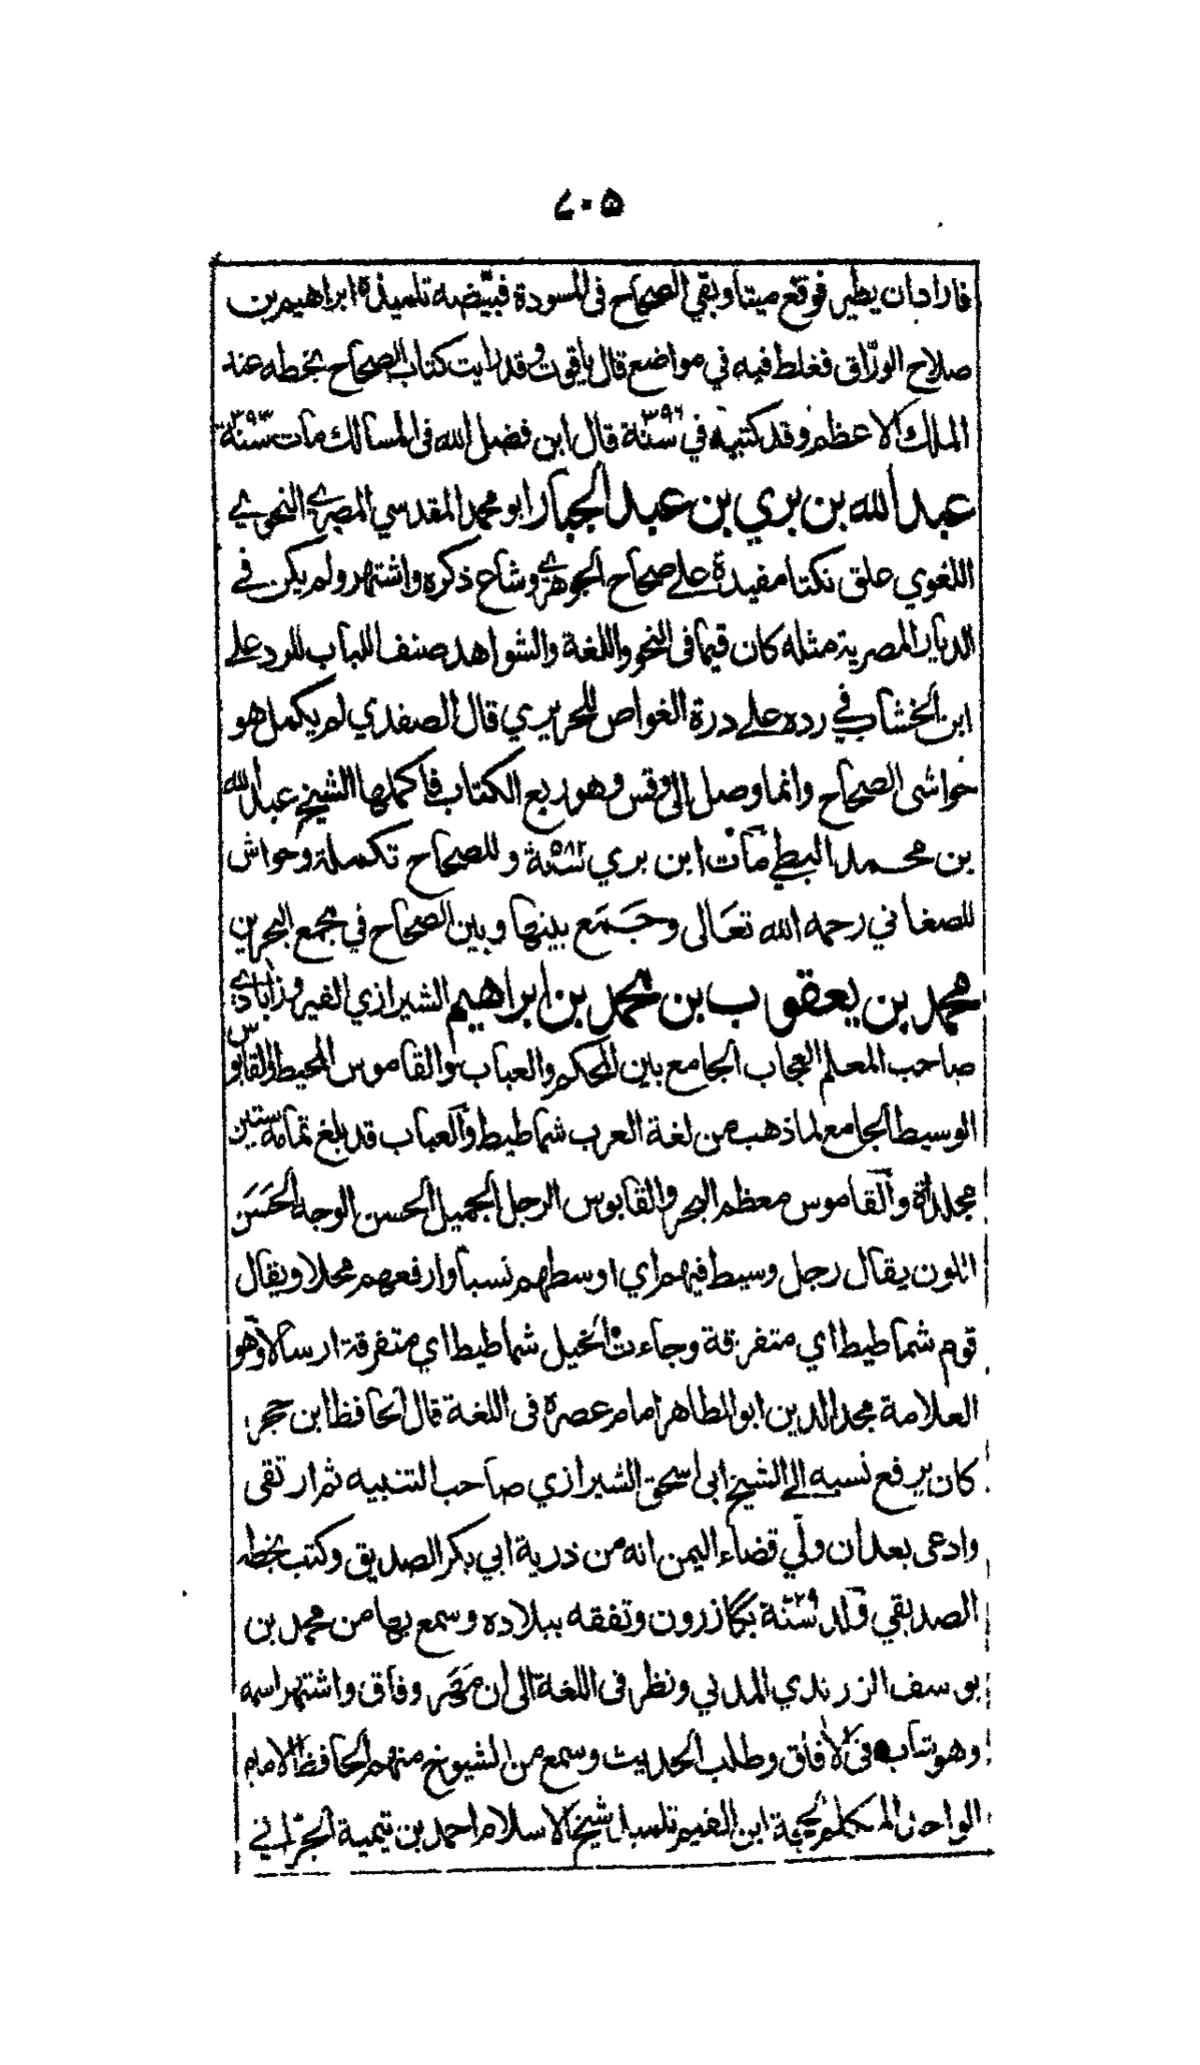 ٧٠٥
فاراد ان يطير فوقع ميتا وبقي الصحاح فى المسودة فبيّضه تلميذه ابراهيم بن
صلاح الورّاق فغلط فيه في مواضع قال ياقوت وقد رايت كتاب الصحاح بخطه عند
الملك الاعظم وقد كتبه في سنة ٣٩٦ قال ابن فضل الله فى المسالك مات سنة ٣٩٣
عبد الله بن بري بن عبد الجبار ابو محمد المقدسي المصري النحوي
اللغوي علق نكتا مفيدة على صحاح الجوهري وشاع ذكره واشتهر ولم يكن في
الديار المصرية مثله كان قيما فى النحو واللغة والشواهد صنف اللباب للرد على
ابن الخشاب في رده على درة الغواص للحريري قال الصفدي لم يكمل هو
حواشى الصحاح وانما وصل الى وقس وهو ربع الكتاب فاكملها الشيخ عبد الله
بن محمد البسطي مات ابن بري سنة ٥٨٢ وللصحاح تكملة وحواش
للصغاني رحمه الله تعالى وجَمَع بينها وبين الصحاح في مجمع البحرين
محمد بن يعقوب بن محمد بن ابراهيم الشيرازي الفيروزابادي
صاحب المعلم العجاب الجامع بين المحكم والعباب والقاموس المحيط والقابوس
الوسيط الجامع لما ذهب من لغة العرب شماطيط والعباب قد بلغ تمامه ستين
مجلدة والقاموس معظم البحر والقابوس الرجل الجميل الحسن الوجه الحَسَن
اللون يقال رجل وسيط فيهم اي اوسطهم نسبا وارفعهم محلا ويقال
قوم شماطيط اي متفرقة وجاءت الخيل شماطيط اي متفرقة ارسالا وهو
العلامة مجد الدين ابو الطاهر امام عصره فى اللغة قال الحافظ ابن حجر
كان يرفع نسبه الى الشيخ ابى اسحق الشيرازي صاحب التنبيه ثم ارتقى
وادعى بعد ان ولي قضاء اليمن انه من ذرية ابي بكر الصديق وكتب بخطه
الصديقي ولد سنة ٧٢٩ بكازرون وتفقه ببلاده وسمع بها من محمد بن
يوسف الزرندي المدني ونظر فى اللغة الى ان مَهَر وفاق واشتهر اسمه
وهو شاب فى الآفاق وطلب الحديث وسمع من الشيوخ منهم الحافظ الامام
الواحد المتكلم الحجة ابن القيم تلميذ شيخ الاسلام احمد بن تيمية الحرّاني